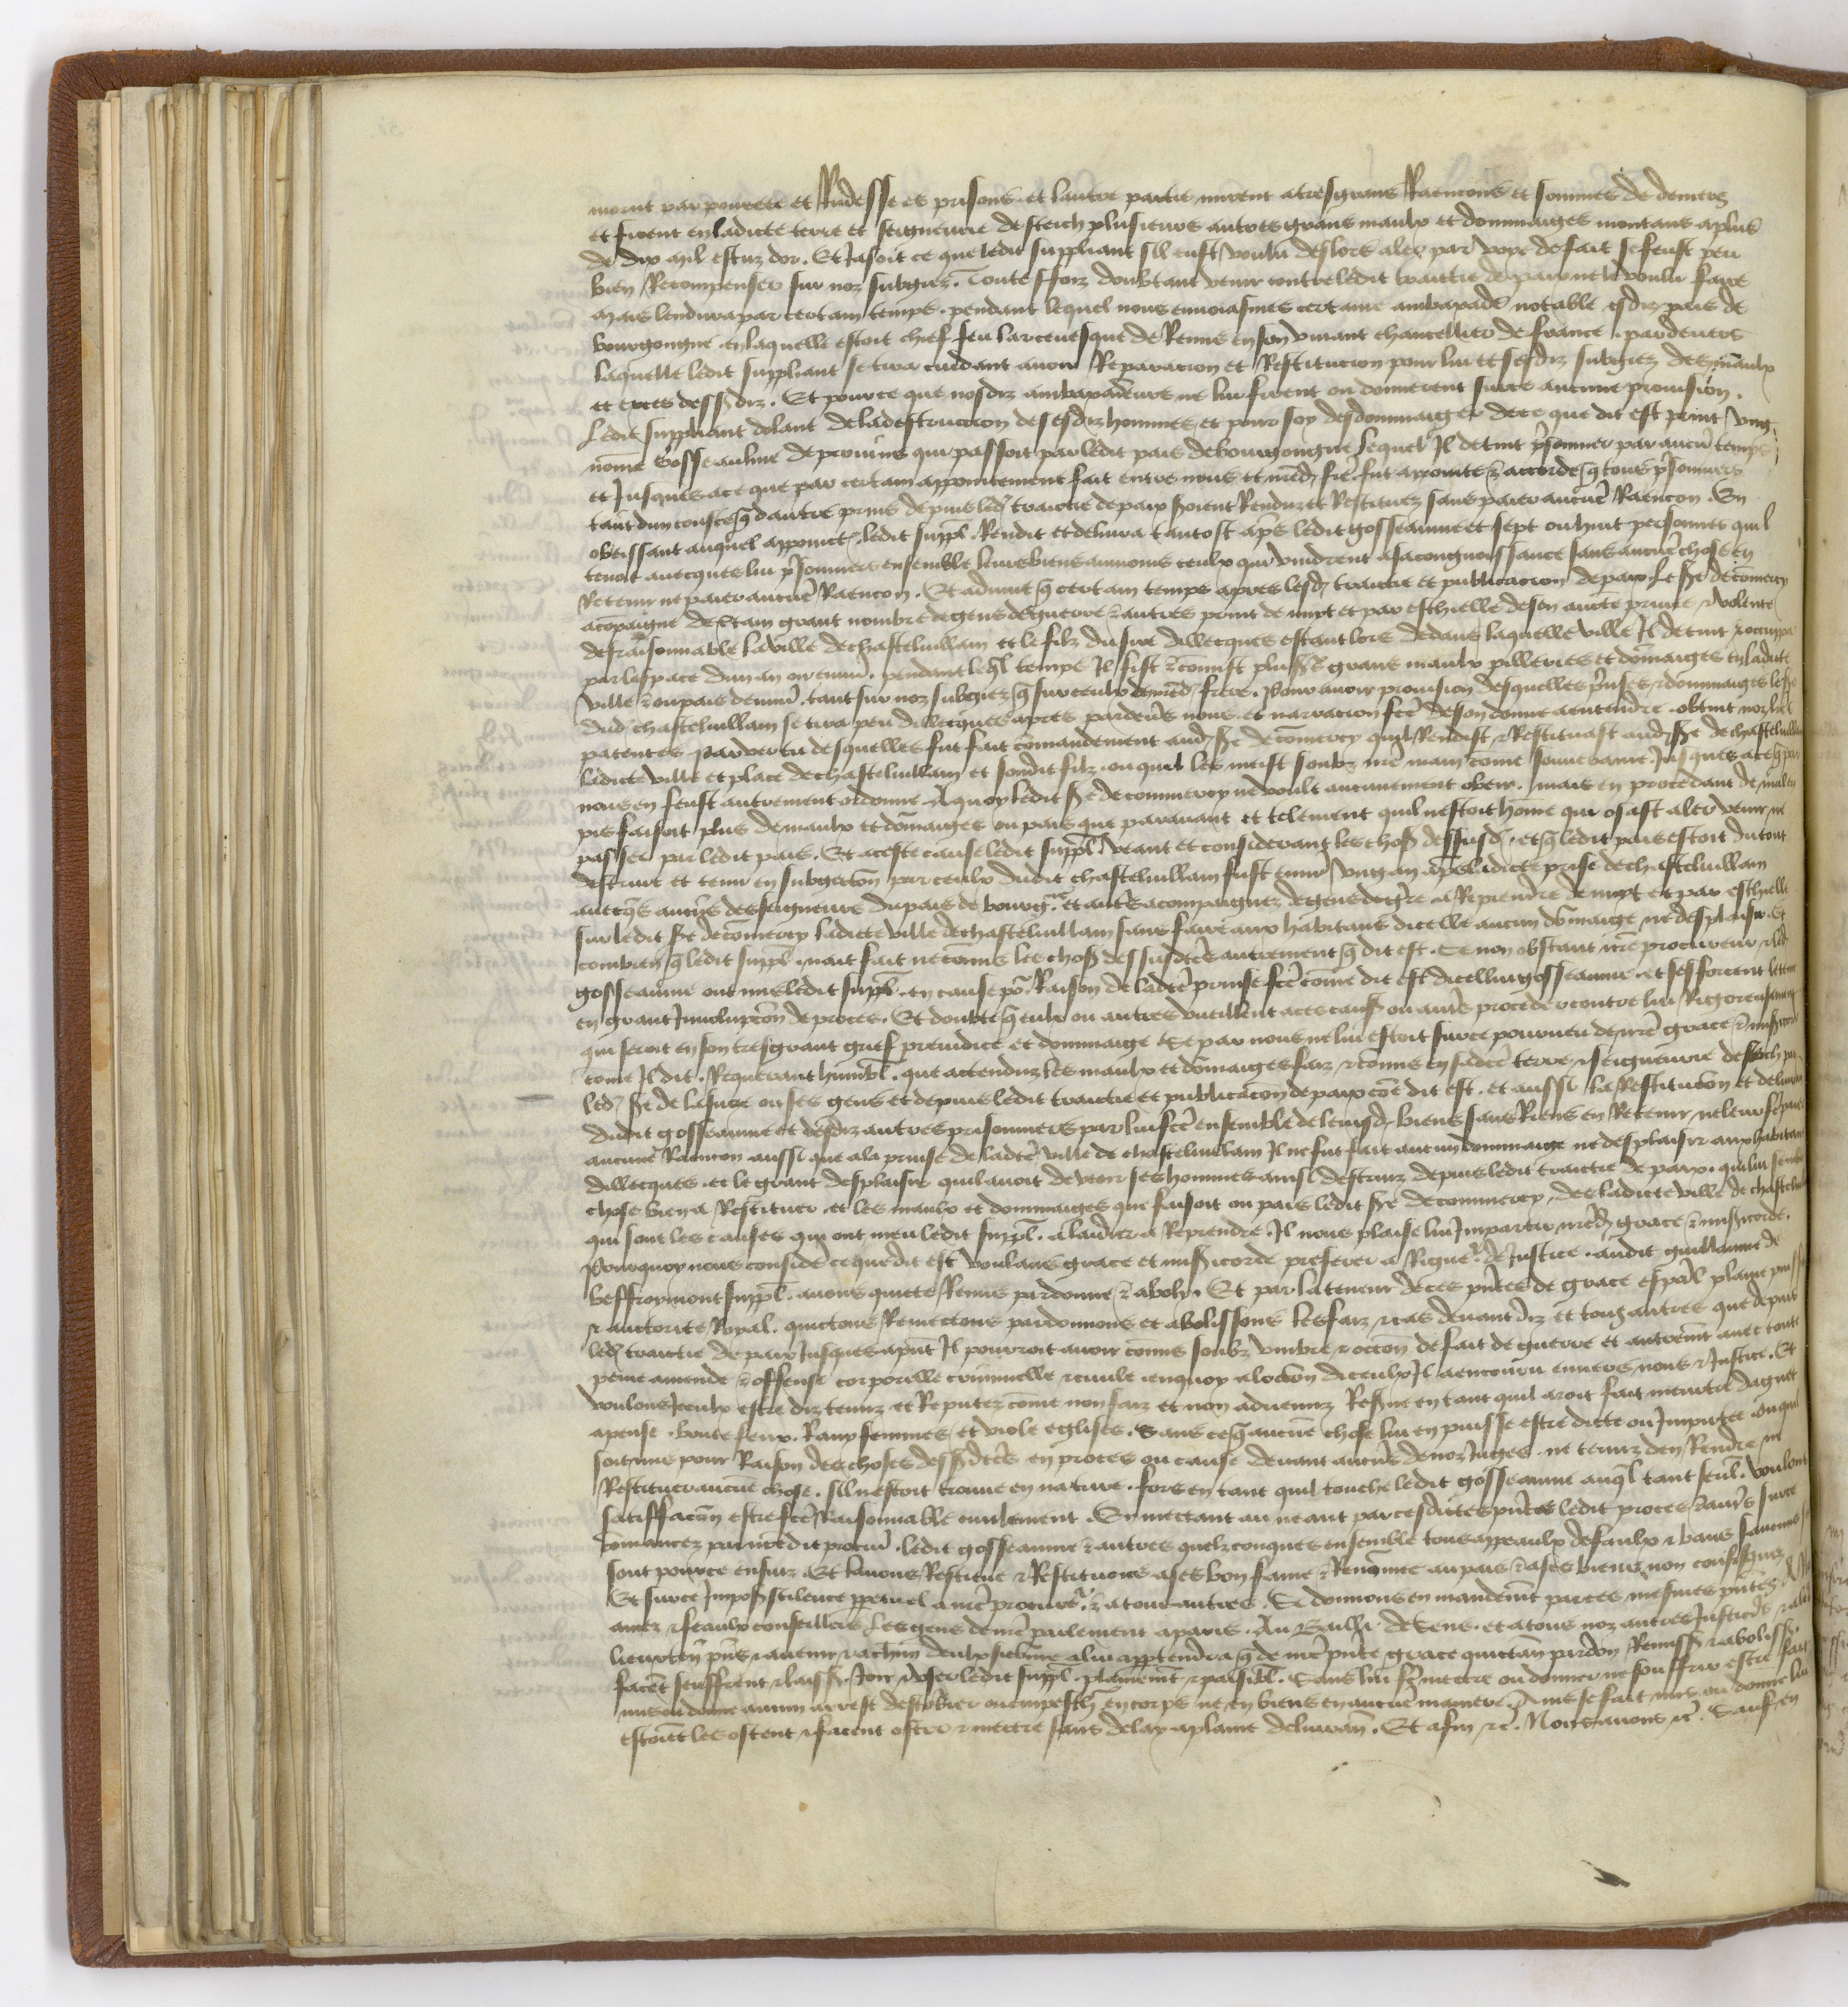 morut par povrete et Rudesse es prisons et lautre partie mirent a tresgrans Raencons et sommes de deniers
et firent en ladicte terre et seigneurie de plusieurs autres grans maulx et dommaiges montans a plus
de dix mil escuz dor. Et Jasoit ce que ledit suppliant sil eust voulu deslors aler par voye de fait se feust peu
bien Recompenser sur noz subgiez. Toutesfoiz doubtant venir contre ledit traictie de paix ne le voulu faire
mais lendura par certain temps. pendant lequel nous envoiasmes certaine ambaxade notable esdiz pais de
bourgongne en laquelle estoit chief feu larcevesque de Reims en son vivant chancellier de france. pardevers
laquelle ledit suppliant se tira cuidant avoir Reparacion et Restitucion pour lui et sesdiz subgiez des maulx
et exces dess diz. Et pource que nosdiz ambaxadeurs ne lui firent ou donnerent surce aucune provision.
Ledit suppliant dolant de la destruction de sesdiz hommes et pour soy desdommaiger de ce que dit est print ung
nome Gosseaulme de provins qui passoit par ledit pais de bourgongne Lequel Il detint psonnier par aucun temps
et Jusques ace que par certain appoinctement fait entre nous et nred frere fut apointe et accorde q tous psonniers
tant dun coste q dautre prins depuis led traictie de paix soient Renduz et Restituez sans paier aucune Raencon. En
obeissant auquel appoinct ledit suppl Rendit et delivra tantost apres ledit gosseaume et sept ou huit personnes quil
tenoit avecques lui psonniers ensemble leurs biens aumoins ceulx qui vindrent a sa congnoissance sans aucune chose en
Retenir ne paier aucune Raencon. Et advint q certain temps apres lesd traictie et publicacion de paix le sr de comercy
acopaigne de certain grant nombre de gens de guerre et autres print de nuyt et par eschielle de son aucte privee et volente
desraisonnable la ville de chasteluillain et le filz du sire dillecques estant lors dedans laquelle ville Il detint et occuppa
par lespace dun an ou environ. pendant leql temps Il fist et comist plusrs grans maulx pilleries et domaiges en ladicte
ville et ou pais denviron. tant sur noz subgiez q sur ceulx de nred frere. Pour avoir provision desquelles prinses et dommaiges le sr
dud chasteluillain se tira peu dillecques apres pardevers nous et narracion fcte de son donne aentendre obtint noz lres
patentes par vertu desquelles fut fait comandement aud sr de comercy quil Rendist et Restituast aud sr de chasteluillain
ladicte ville et place de chasteluillain et sondit filz. ou quil les meist soubz nre main come souveraine Jusques ace q par
nous en feust autrement ordonne. A quoy ledit sr de commercy ne voult aucunement obeir. mais en procedant de mal en
pis faisoit plus de maulx et domaiges ou pais que paravant et telement quil nestoit home qui osast aler venir ne
passer par ledit pais. Et aceste cause ledit suppl veant et considerant les choses dessusd. et q ledit pais estoit du tout
destruit et tenu en subgection par ceulx dudit chasteluillain fust environ ung an apres ladicte prise de chasteluillain
avecqs autres des seigneurs du pais de bourg et autres acompaignez de gens de grre a Reprendre de nuyt et par eschielle
sur ledit sr de comercy ladicte ville de chasteluillain sans faire aux habitans dicelle aucun domaige ne desplaisir. Et
combien q ledit suppl nait fait ne comis les choses dessusdctes autrement q dit est. Ce non obstant nre procureur et led
gosseaume ont mis ledit suppl en cause por Raison de ladcte prinse fcte come dit est dicellui gosseaume. et sefforcent le tenir
en grant Involucion de proces. Et doubte q eulx ou autres vueillent a ceste cause ou autre proceder contre lui Rigoreusement
qui seroit en son tresgrant grief preiudice et dommaige Se par nous ne lui estoit surce pourveu de nre grace et misericorde
come Il dit. Requerant humbl. que actenduz les maulx et domaiges faiz et comis en sadcte terre et seigneurie de par
led sr de la suze ou ses gens et depuis ledit traictie et publicacion de paix coe dit est. et aussi la Restitucion et delivrance
dudit gosseaume et desdiz autres prisonniers par lui fcte ensemble de leursd biens sans Riens en Retenir ne leur faire paier
aucune Raencon aussi que a la prinse de ladcte ville de chasteluillain Il ne fut fait aucun dommaige ne desplaisir aux habitans
dillecques. et le grant desplaisir quil avoit de veoir ses hommes ainsi destruiz depuis ledit traictie de paix. quil lui semble
chose bien a Restituer. et les maulx et dommaiges que faisoit ou pais ledit sr de commercy. de ladicte ville de chasteluillain
qui sont les causes qui ont meu ledit suppl. a laidier a Reprendre. Il nous plaise lui Impartir nred grace et misericorde.
Pourquoy nous consideré ce que dit est voulans grace et misericorde preferer a Rigueur de Justice. audit guillaume de
beffroymont suppl. avons quicte Remis pardonne et aboly. Et par la teneur de ces pntes de grace espal plaine puiss
et auctorite Royal. quictons Remectons pardonnons et abolissons les faiz et cas devant diz et touz autres que depuis
led traictie de paix Jusques apnt Il pourroit avoir comis soubz umbre et occion de fait de guerre et autremt avec toute
peine amende et offense corporelle criminelle et civile enquoy a loccion diceulx Il a encouru envers nous et Justice. Et
voulons Iceulx estre diz tenuz et Reputez come non faiz et non advenuz Reserve en tant quil aroit fait meurtre daguet
apense. boute feux. Ravy femmes et viole eglises. Sans ce q aucune chose lui en puisse estre dicte ou Imputee. ou quil
soit mis pour Raison des choses dessdctes en proces ou cause devant aucuns de noz Juges. ne tenuz den Rendre ne
Restituer aucune chose. sil nestoit trouve en nature. fors en tant quil touche ledit gosseaume auql tant seul. voulons
satisfacion estre fcte Raisonnable civilement. En mectant au neant par cesdites pntes ledit proces et autres surce
comancez par nredit procur. ledit gosseaume et autres quelzconques ensemble tous appeaulx defaulx et bans saucuns
sont pource ensuiz. Et lavons Restitue et Restituons a ses bon fame et Renomee au pais et a ses biens non confisquez
Et surce Imposs silence ppetuel a nre procureur et a tous autres. Se donnons en mandemt par ces mesmes pntes A noz
amez et feaulx conseillers les gens de nre parlement a paris. Au Bailli de Sens. et a tous noz autres Justiciers et a leurs
lieuxten pns et avenir et achun deulx sicome a lui apptendra q de nre pnte grace quictance pardon Remiss et aboliss.
facent seuffrent et laiss Joir et user ledit suppl. plainemt et paisibl. Sans lui fe mectre ou donner ne souffrir estre fait
mis ou donne aucun arrest destorbier ou empesch en corps ne en biens en aucune maniere. Ains se fait mis ou donne lui
estoient les ostent et facent oster et mectre sans delay a plaine delivrance. Et afin etc. Nous avons etc. Sauf en